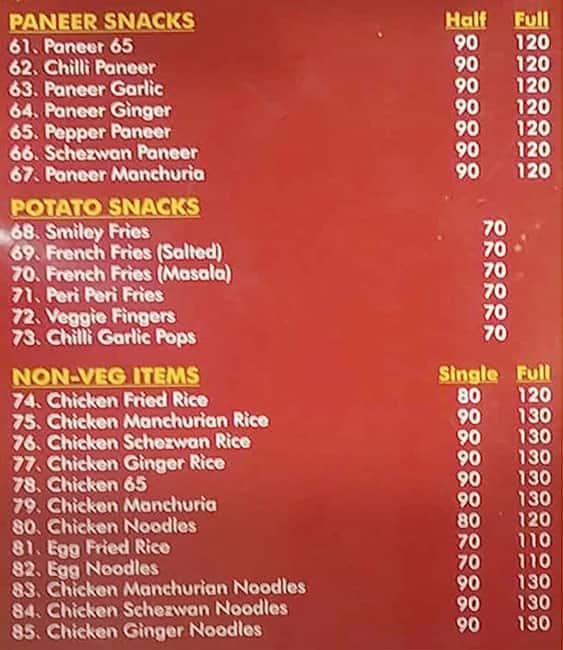 PANEER SNACKS Half Full
61. Paneer 65 90 120
62. Chilli Paneer 90 120
63. Paneer Garlic 90 120
64. Paneer Ginger 90 120
65. Pepper Paneer 90 120
66. Schezwan Paneer 90 120
67. Paneer Manchuria 90 120
POTATO SNACKS
68. Smiley Fries 70
69. French Fries (Salted) 70
70. French Fries (Masala) 70
71. Peri Peri Fries 70
72. Veggie Fingers 70
73. Chilli Garlic Pops 70
NON-VEG ITEMS Single Full
74. Chicken Fried Rice 80 120
75. Chicken Manchurian Rice 90 130
76. Chicken Schezwan Rice 90 130
77. Chicken Ginger Rice 90 130
78. Chicken 65 90 130
79. Chicken Manchuria 90 130
80. Chicken Noodles 80 120
81. Egg Fried Rice 70 110
82. Egg Noodles 70 110
83. Chicken Manchurian Noodles 90 130
84. Chicken Schezwan Noodles 90 130
85. Chicken Ginger Noodles 90 130